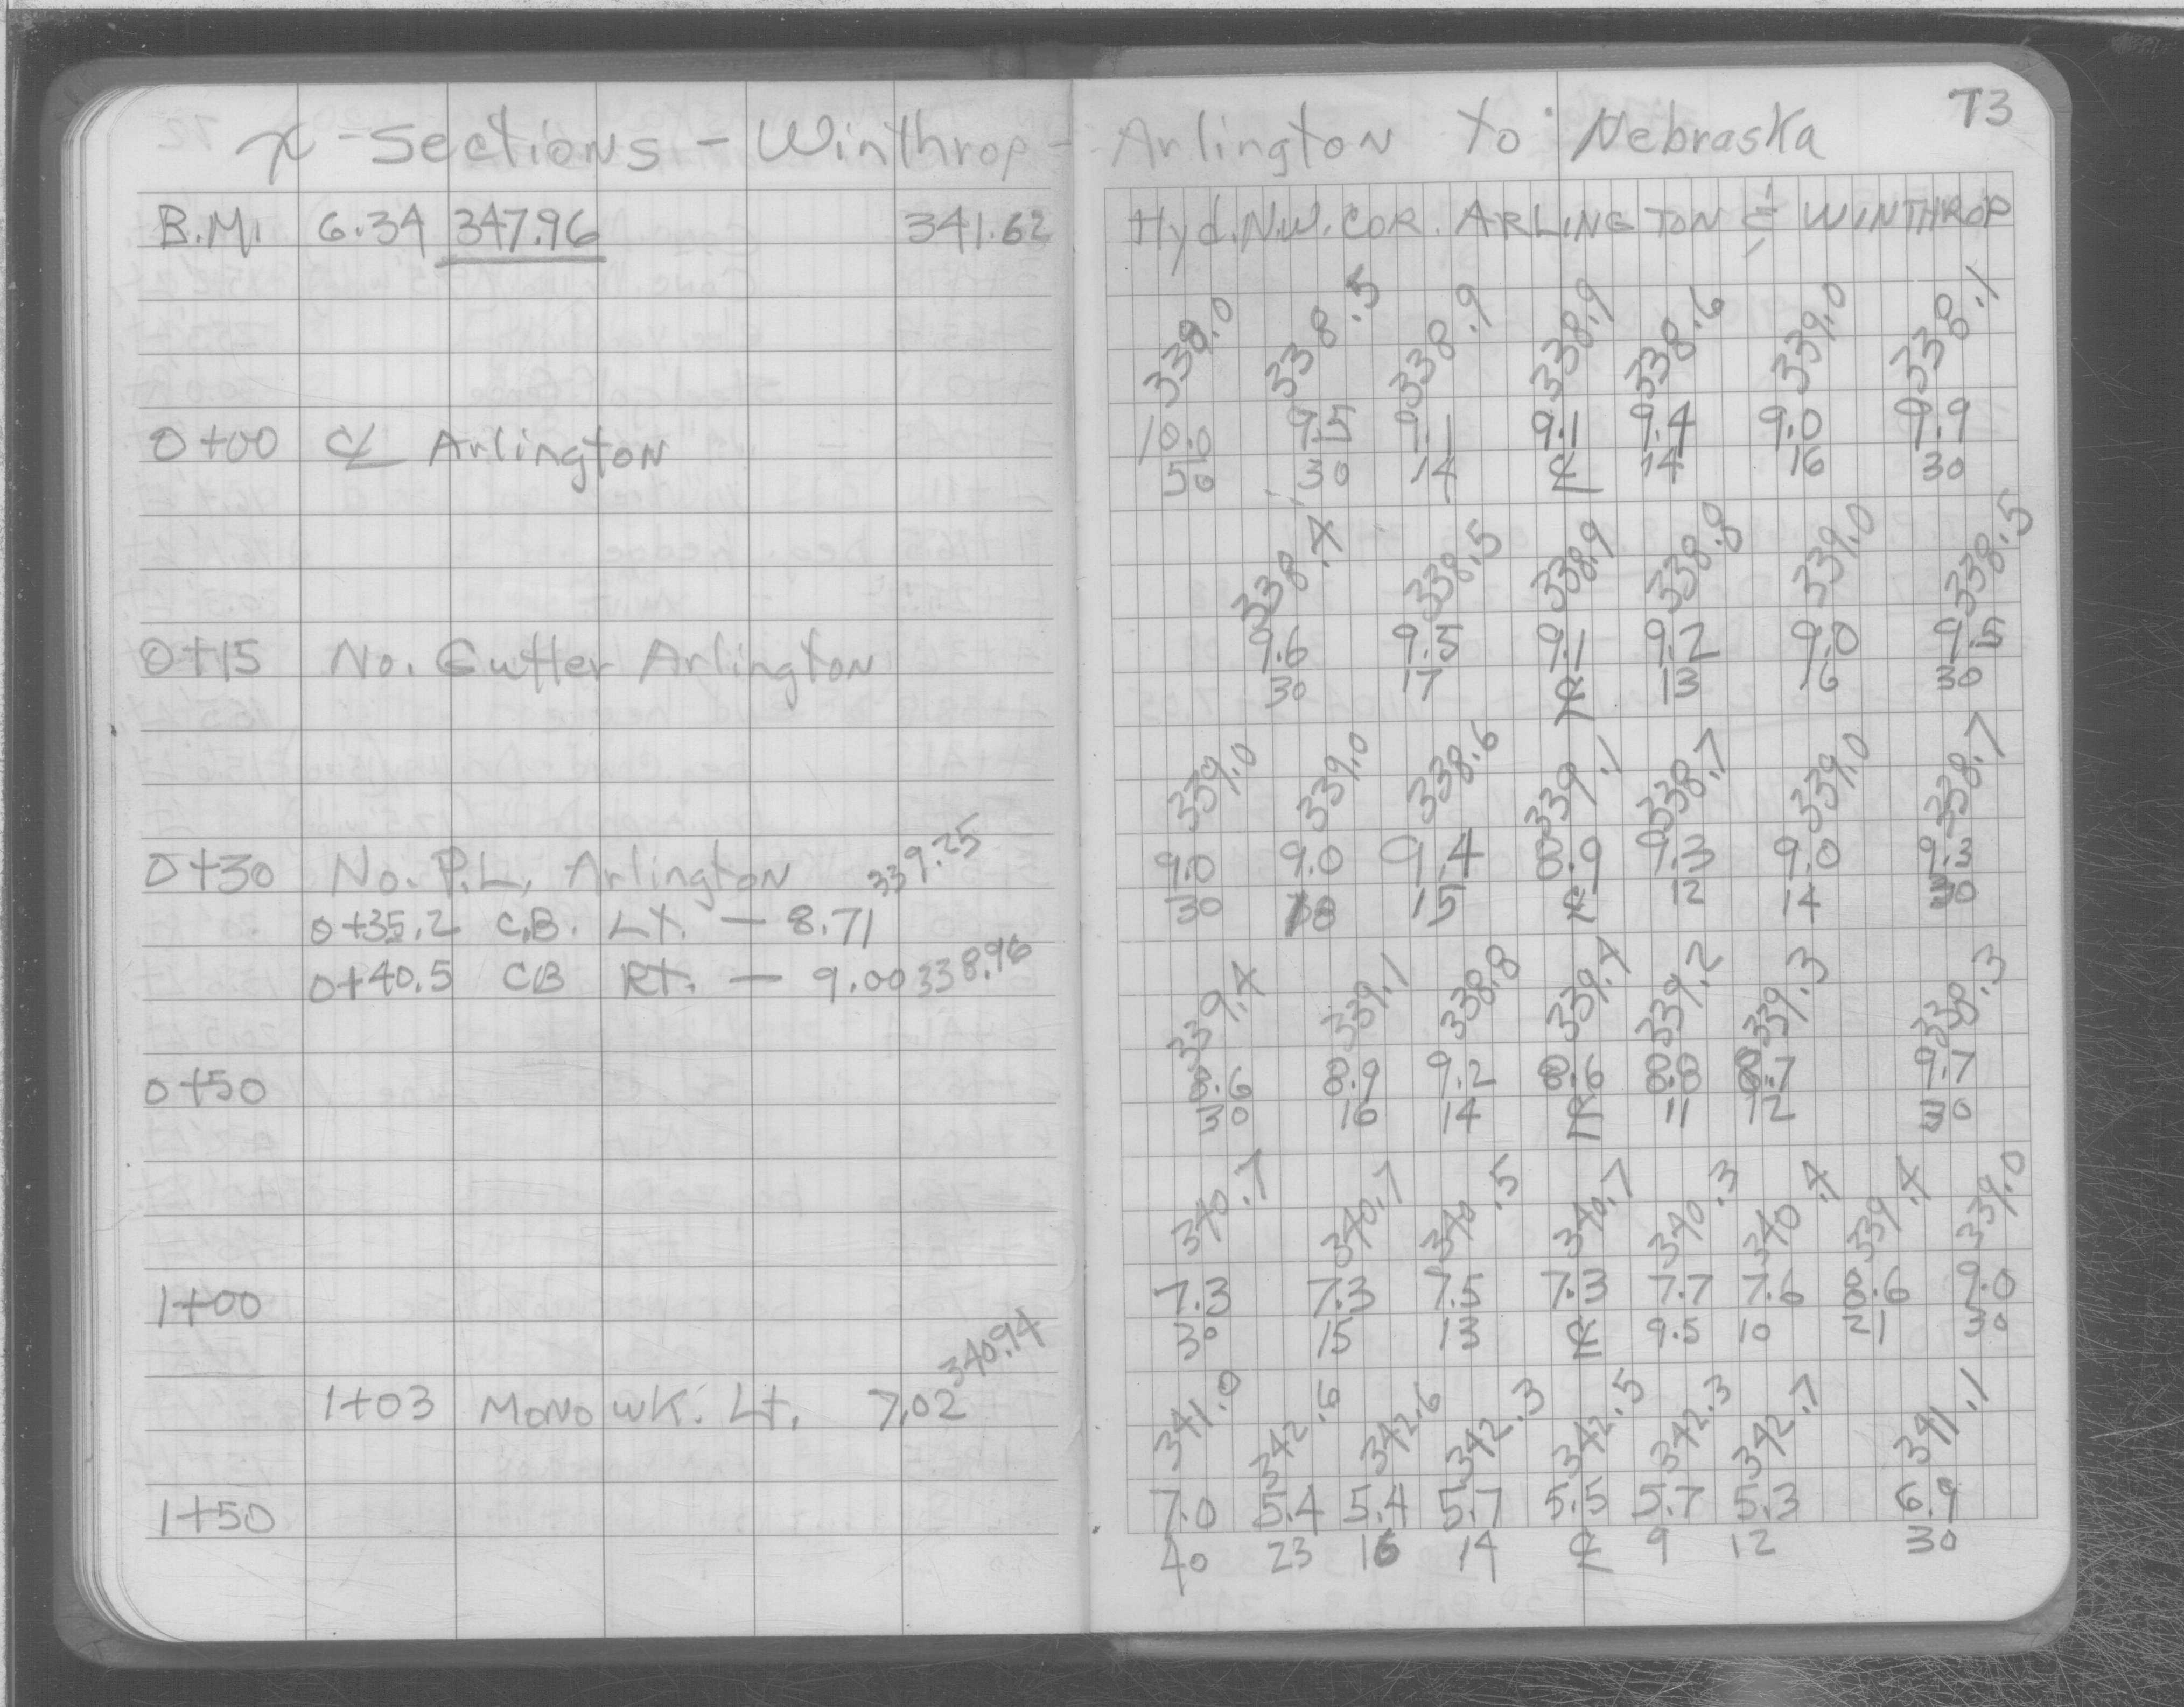 73
x-Sections - Winthrop - Arlington to Nebraska
B.M. 6.34 347.96 341.62 Hyd. N.W. COR. ARLINGTON & WINTHROP
339.0 338.5 338.9 338.9 338.6 339.0 338.1
0+00 ℄ Arlington 10.0 9.5 9.1 9.1 9.4 9.0 9.9
50 30 14 ℄ 14 16 30
338.4 338.5 338.9 338.8 339.0 338.5
0+15 No. Gutter Arlington 9.6 9.5 9.1 9.2 9.0 9.5
30 17 ℄ 13 16 30
339.0 339.0 338.6 339.1 338.7 339.0 338.7
0+30 No. P.L. Arlington 9.0 9.0 9.4 8.9 9.3 9.0 9.3
30 18 15 ℄ 12 14 30
0+35.2 C.B. Lt. - 8.71 339.25
0+40.5 CB Rt. - 9.00 338.96
339.4 339.1 338.8 339.4 339.2 339.3 338.3
0+50 8.6 8.9 9.2 8.6 8.8 8.7 9.7
30 16 14 ℄ 11 12 30
340.7 340.7 340.5 340.7 340.3 340.4 339.4 339.0
1+00 7.3 7.3 7.5 7.3 7.7 7.6 8.6 9.0
30 15 13 ℄ 9.5 10 21 30
1+03 Mono wk. Lt. 7.02 340.94
341.0 342.6 342.6 342.3 342.5 342.3 342.7 341.1
1+50 7.0 5.4 5.4 5.7 5.5 5.7 5.3 6.9
40 23 16 14 ℄ 9 12 30